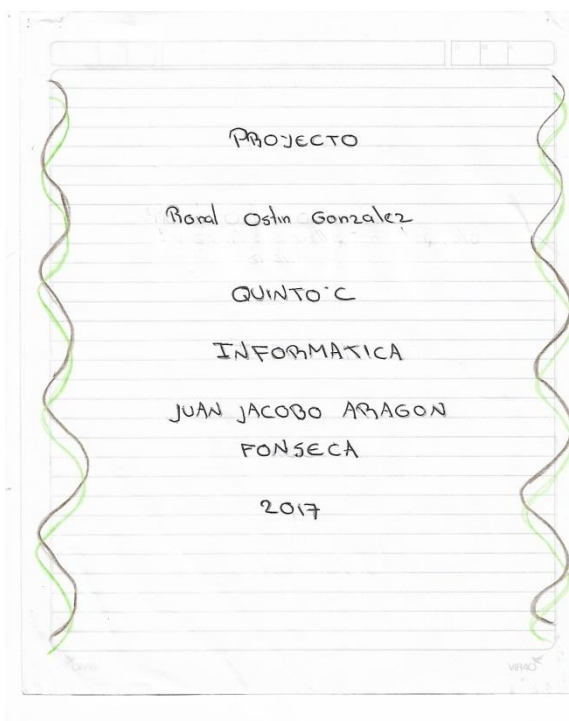 PROYECTO
Ronal Ostin Gonzalez
QUINTO·C
INFORMATICA
JUAN JACOBO ARAGON
FONSECA
2017